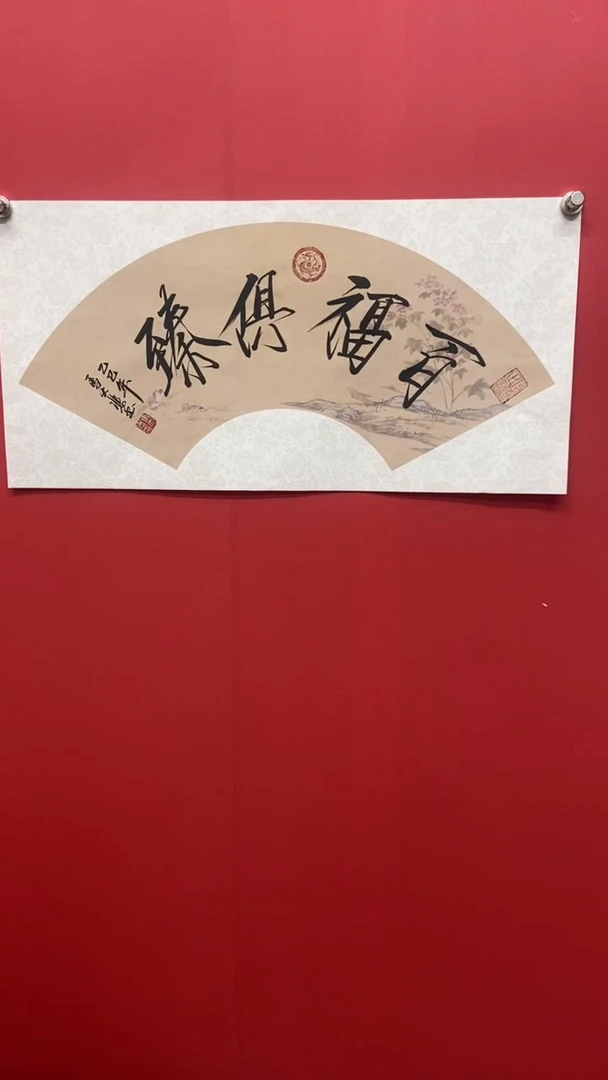 百福俱臻
乙巳年